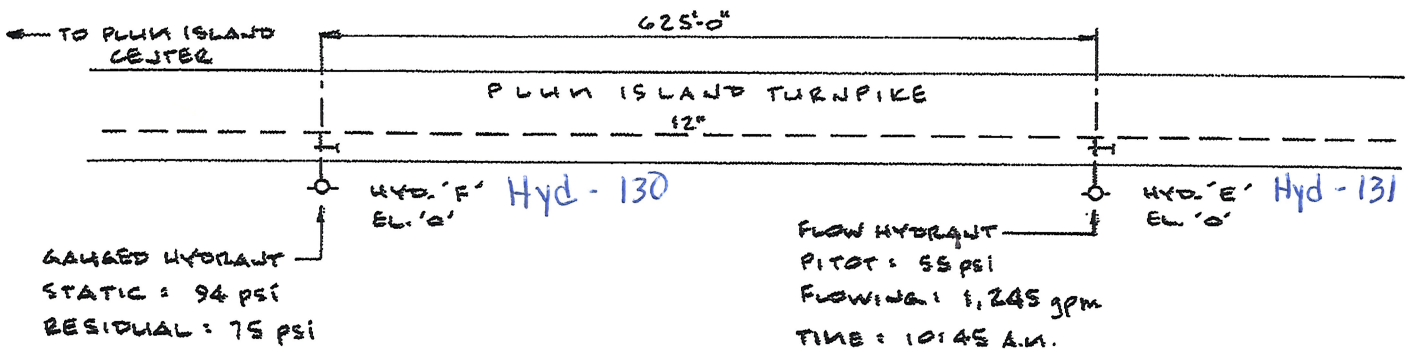 625'-0"
← TO PLUM ISLAND
CENTER
PLUM ISLAND TURNPIKE
12"
HYD. 'F' Hyd - 130
EL. '0'
HYD. 'E' Hyd - 131
EL. '0'
GAUGED HYDRANT
STATIC : 94 psi
RESIDUAL : 75 psi
FLOW HYDRANT
PITOT : 55 psi
FLOWING : 1,245 gpm
TIME : 10:45 A.M.